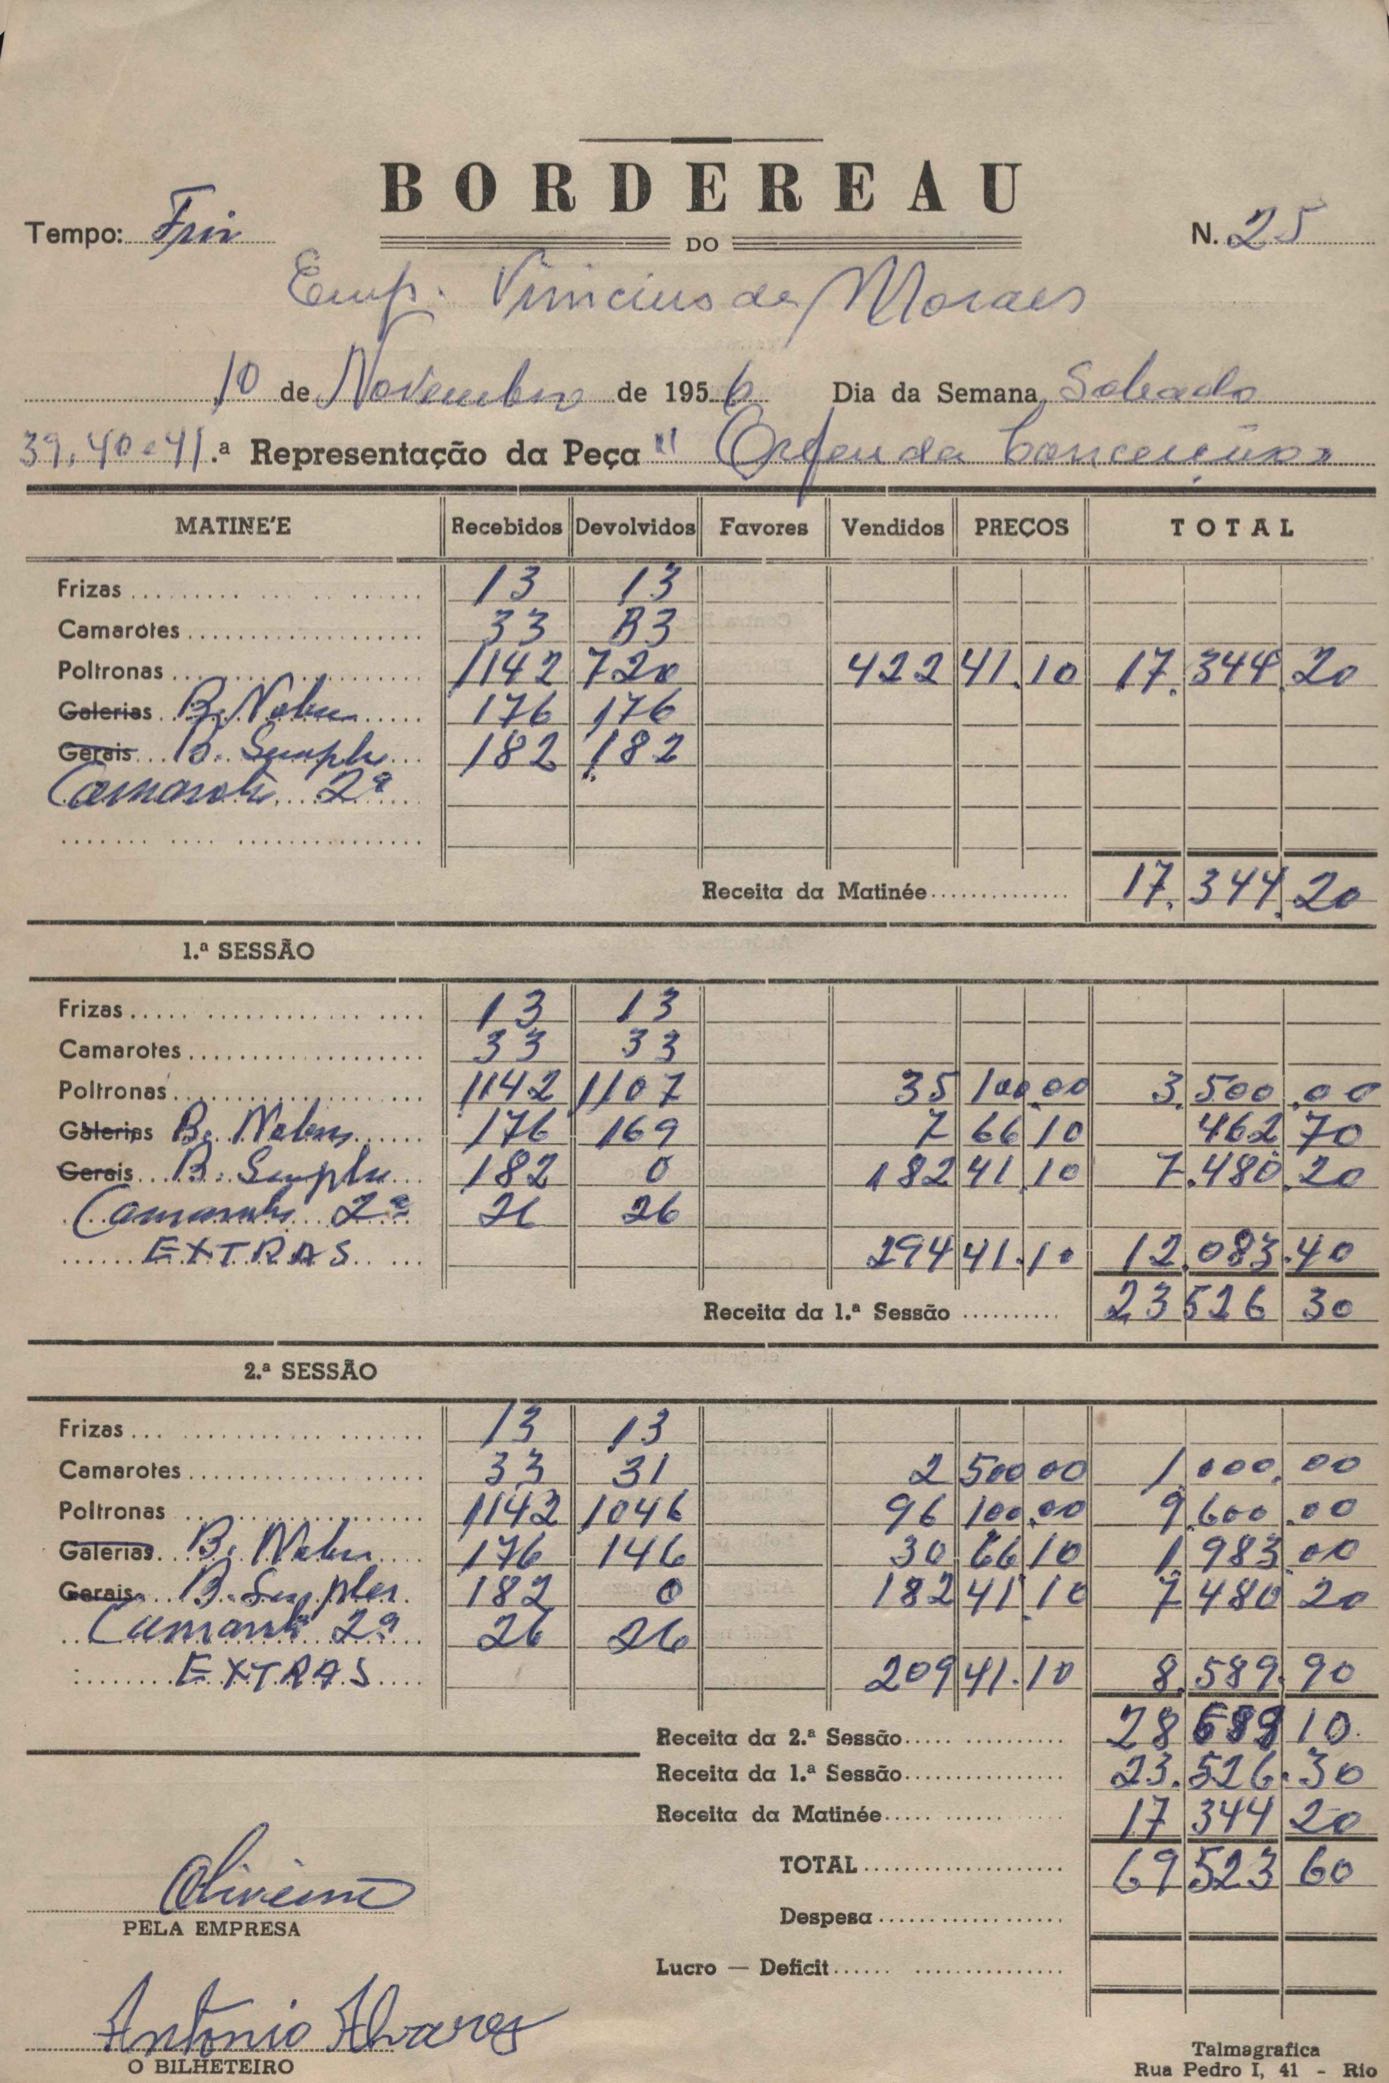 BORDEREAU
Tempo: Frio
DO
N. 25
Emp. Vinicius de Moraes
10 de Novembro de 1956 Dia da Semana Sabado
39, 40 e 41.ª Representação da Peça "Orfeu da Conceição"
MATINE'E Recebidos Devolvidos Favores Vendidos PREÇOS TOTAL
Frizas 13 13
Camarotes 33 33
Poltronas 1142 720 422 41.10 17.344.20
Galerias B. Nobre 176 176
Gerais B. Simples 182 182
Camarote 2ª
Receita da Matinée 17.344.20
1.ª SESSÃO
Frizas 13 13
Camarotes 33 33
Poltronas 1142 1107 35 100.00 3.500.00
Galerias B. Nobres 176 169 7 66 10 462 70
Gerais B. Simples 182 0 182 41.10 7.480.20
Camarote 2ª 26 26
EXTRAS 294 41.10 12.083.40
Receita da 1.ª Sessão 23 526 30
2.ª SESSÃO
Frizas 13 13
Camarotes 33 31 2 500 00 1.000.00
Poltronas 1142 1046 96 100.00 9.600.00
Galerias B. Nobre 176 146 30 66 10 1.983.00
Gerais B. Simples 182 0 182 41.10 7 480 20
Camarote 2ª 26 26
EXTRAS 209 41.10 8.589.90
Receita da 2.ª Sessão 28 10
Receita da 1.ª Sessão 23.526.30
Receita da Matinée 17 344 20
TOTAL 69 523 60
Oliveira
Despesa
PELA EMPRESA
Lucro — Deficit
Antonio Alvares
O BILHETEIRO
Talmagrafica
Rua Pedro I, 41 - Rio